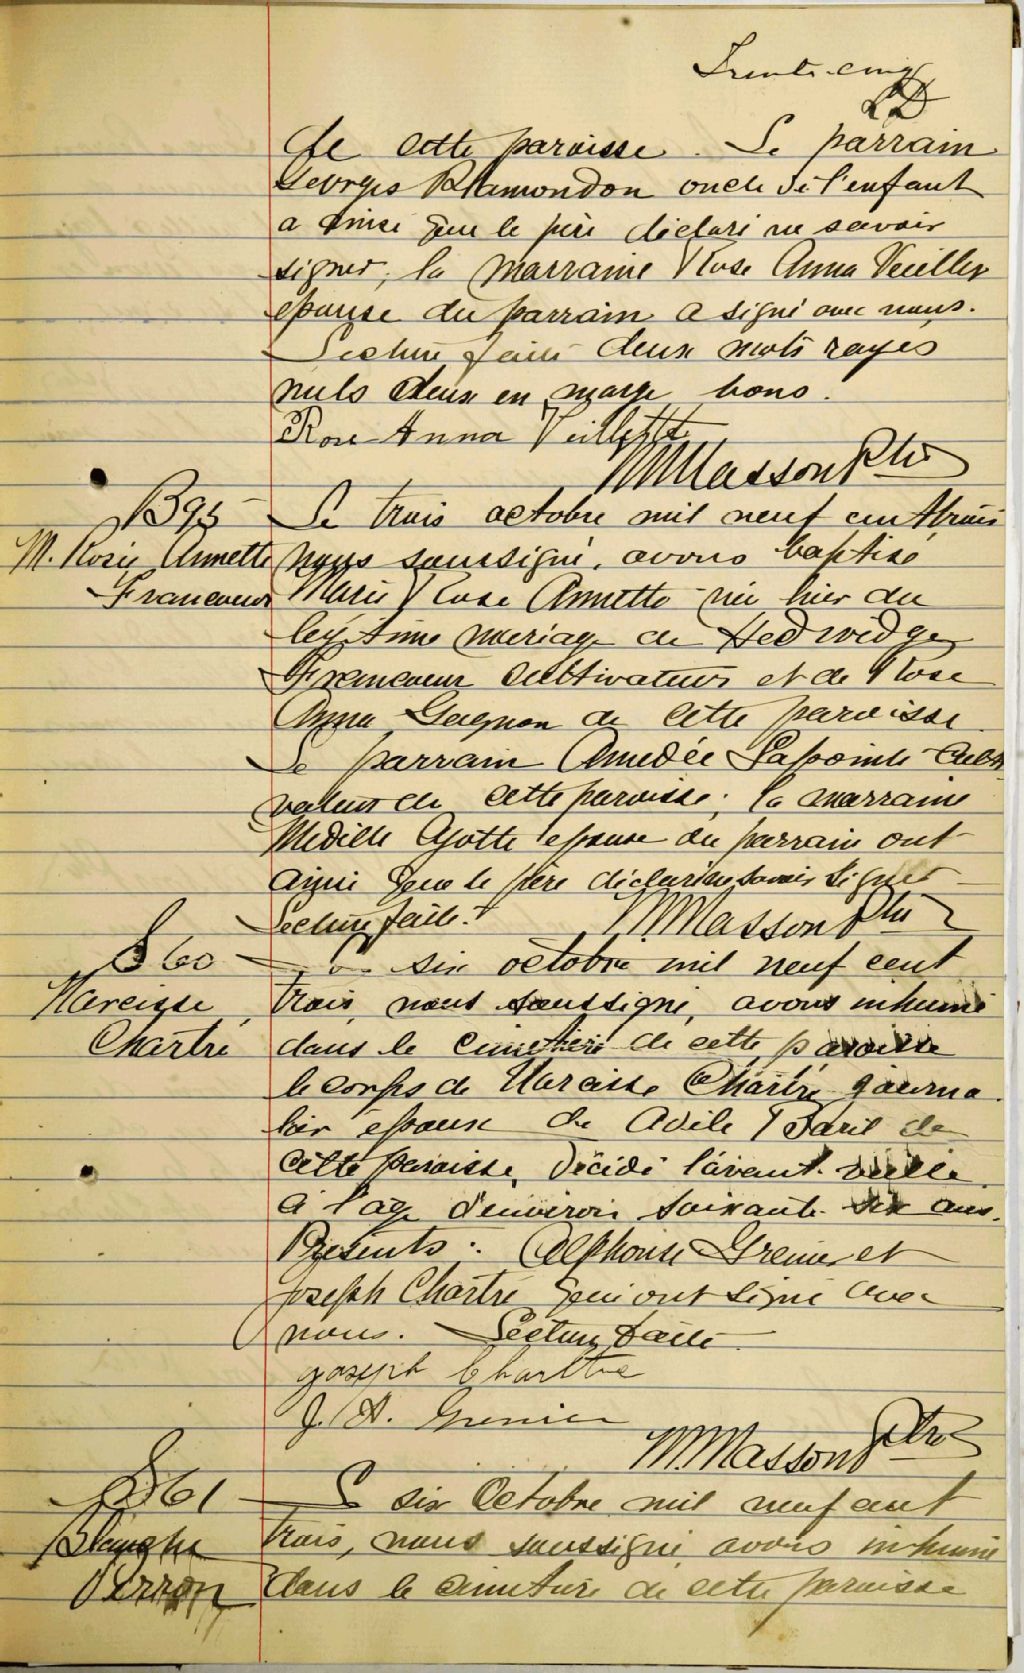 Trente-cinq
de cette paroisse. Le parrain
Georges Plamondon oncle de l'enfant
a ainsi que le père déclaré ne savoir
signer, la marraine Rose Anna Veillette
épouse du parrain a signé avec nous.
Lecture faite deux mots rayés
nuls deux en marge bons.
Rose-Anna Veillette
M Masson Ptre
B95
M. Rose Annette
Francoeur
Le trois octobre mil neuf cent trois
nous soussigné, avons baptisé
Marie Rose Annette née hier du
légitime mariage de Hedwidge
Francoeur cultivateur et de Rose
Anna Gagnon de cette paroisse.
Le parrain Amedée Lapointe culti
vateur de cette paroisse; la marraine
Medille Ayotte épouse du parrain ont
ainsi que le père déclaré ne savoir signer
Lecture faite.
M Masson Ptre
S60
Narcisse
Chartré
Le six octobre mil neuf cent
trois, nous soussigné, avons inhumé
dans le cimetière de cette paroisse
le corps de Narcisse Chartré journa
lier époux de Adile Baril de
cette paroisse, décédé l'avant-veille
à l'age d'environ soixante-six ans.
Présents: Alphonse Grenier et
Joseph Chartré qui ont signé avec
nous. Lecture faite
Joseph Charttre
J. A. Grenier
M. Masson Ptre
S61
Blanche
Verron
Le six octobre mil neuf cent
trois, nous soussigné avons inhumé
dans le cimetière de cette paroisse